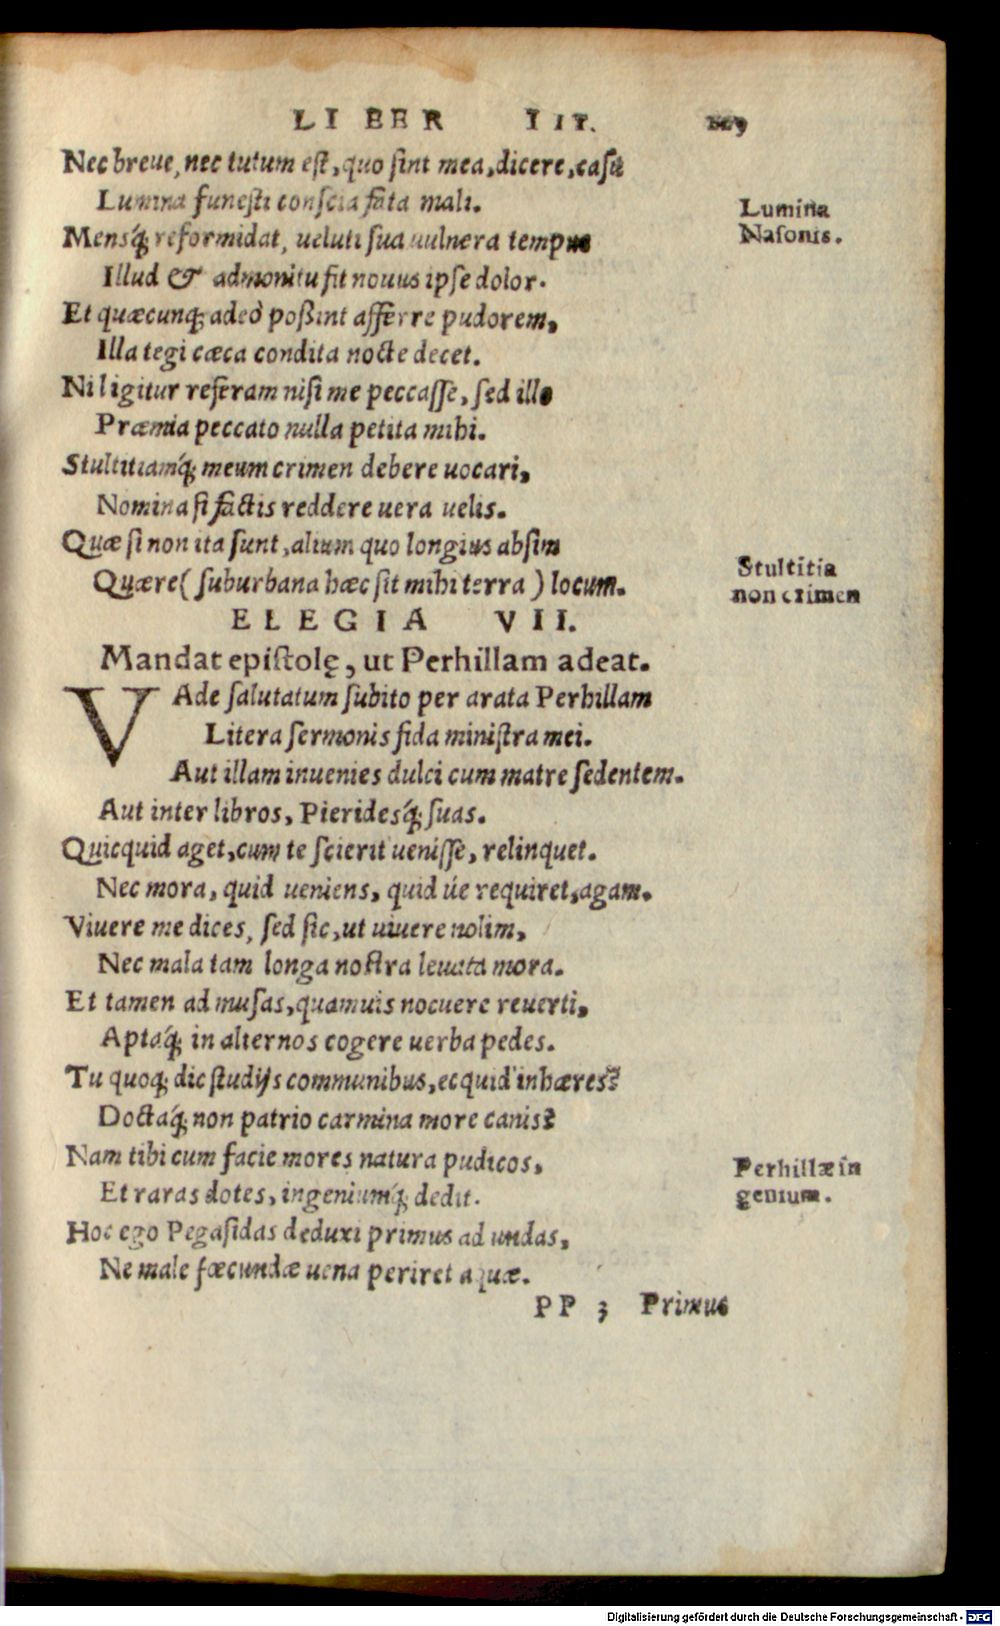 LIBER III.
Nec breue, nec tutum est, quo sint mea, dicere, casu
Lumina funesti conscia fata mali.
Lumina
Mensq́; reformidat, ueluti sua uulnera tempus
Nasonis.
Illud & admonitu fit nouus ipse dolor.
Et quæcunq; adeò possint afferre pudorem,
Illa tegi cæca condita nocte decet.
Nil igitur referam nisi me peccasse, sed illo
Præmia peccato nulla petita mihi.
Stultitiamq́; meum crimen debere uocari,
Nomina si factis reddere uera uelis.
Quæ si non ita sunt, alium quo longius absim
Stultitia
Quære (suburbana hæc sit mihi terra) locum.
non crimen
ELEGIA VII.
Mandat epistolę, ut Perhillam adeat.
VAde salutatum subito per arata Perhillam
Litera sermonis fida ministra mei.
Aut illam inuenies dulci cum matre sedentem.
Aut inter libros, Pieridesq́; suas.
Quicquid aget, cum te scierit uenisse, relinquet.
Nec mora, quid ueniens, quid úe requiret, agam.
Viuere me dices, sed sic, ut uiuere nolim,
Nec mala tam longa nostra leuata mora.
Et tamen ad musas, quamuis nocuere reuerti,
Aptaq́; in alternos cogere uerba pedes.
Tu quoq; dic studijs communibus, ecquid inhæres?
Doctaq́; non patrio carmina more canis?
Nam tibi cum facie mores natura pudicos,
Perhillæ in
Et raras dotes, ingeniumq́; dedit.
genium.
Hoc ego Pegasidas deduxi primus ad undas,
Ne male fœcundæ uena periret aquæ.
PP 3 Primus
Digitalisierung gefördert durch die Deutsche Forschungsgemeinschaft - DFG